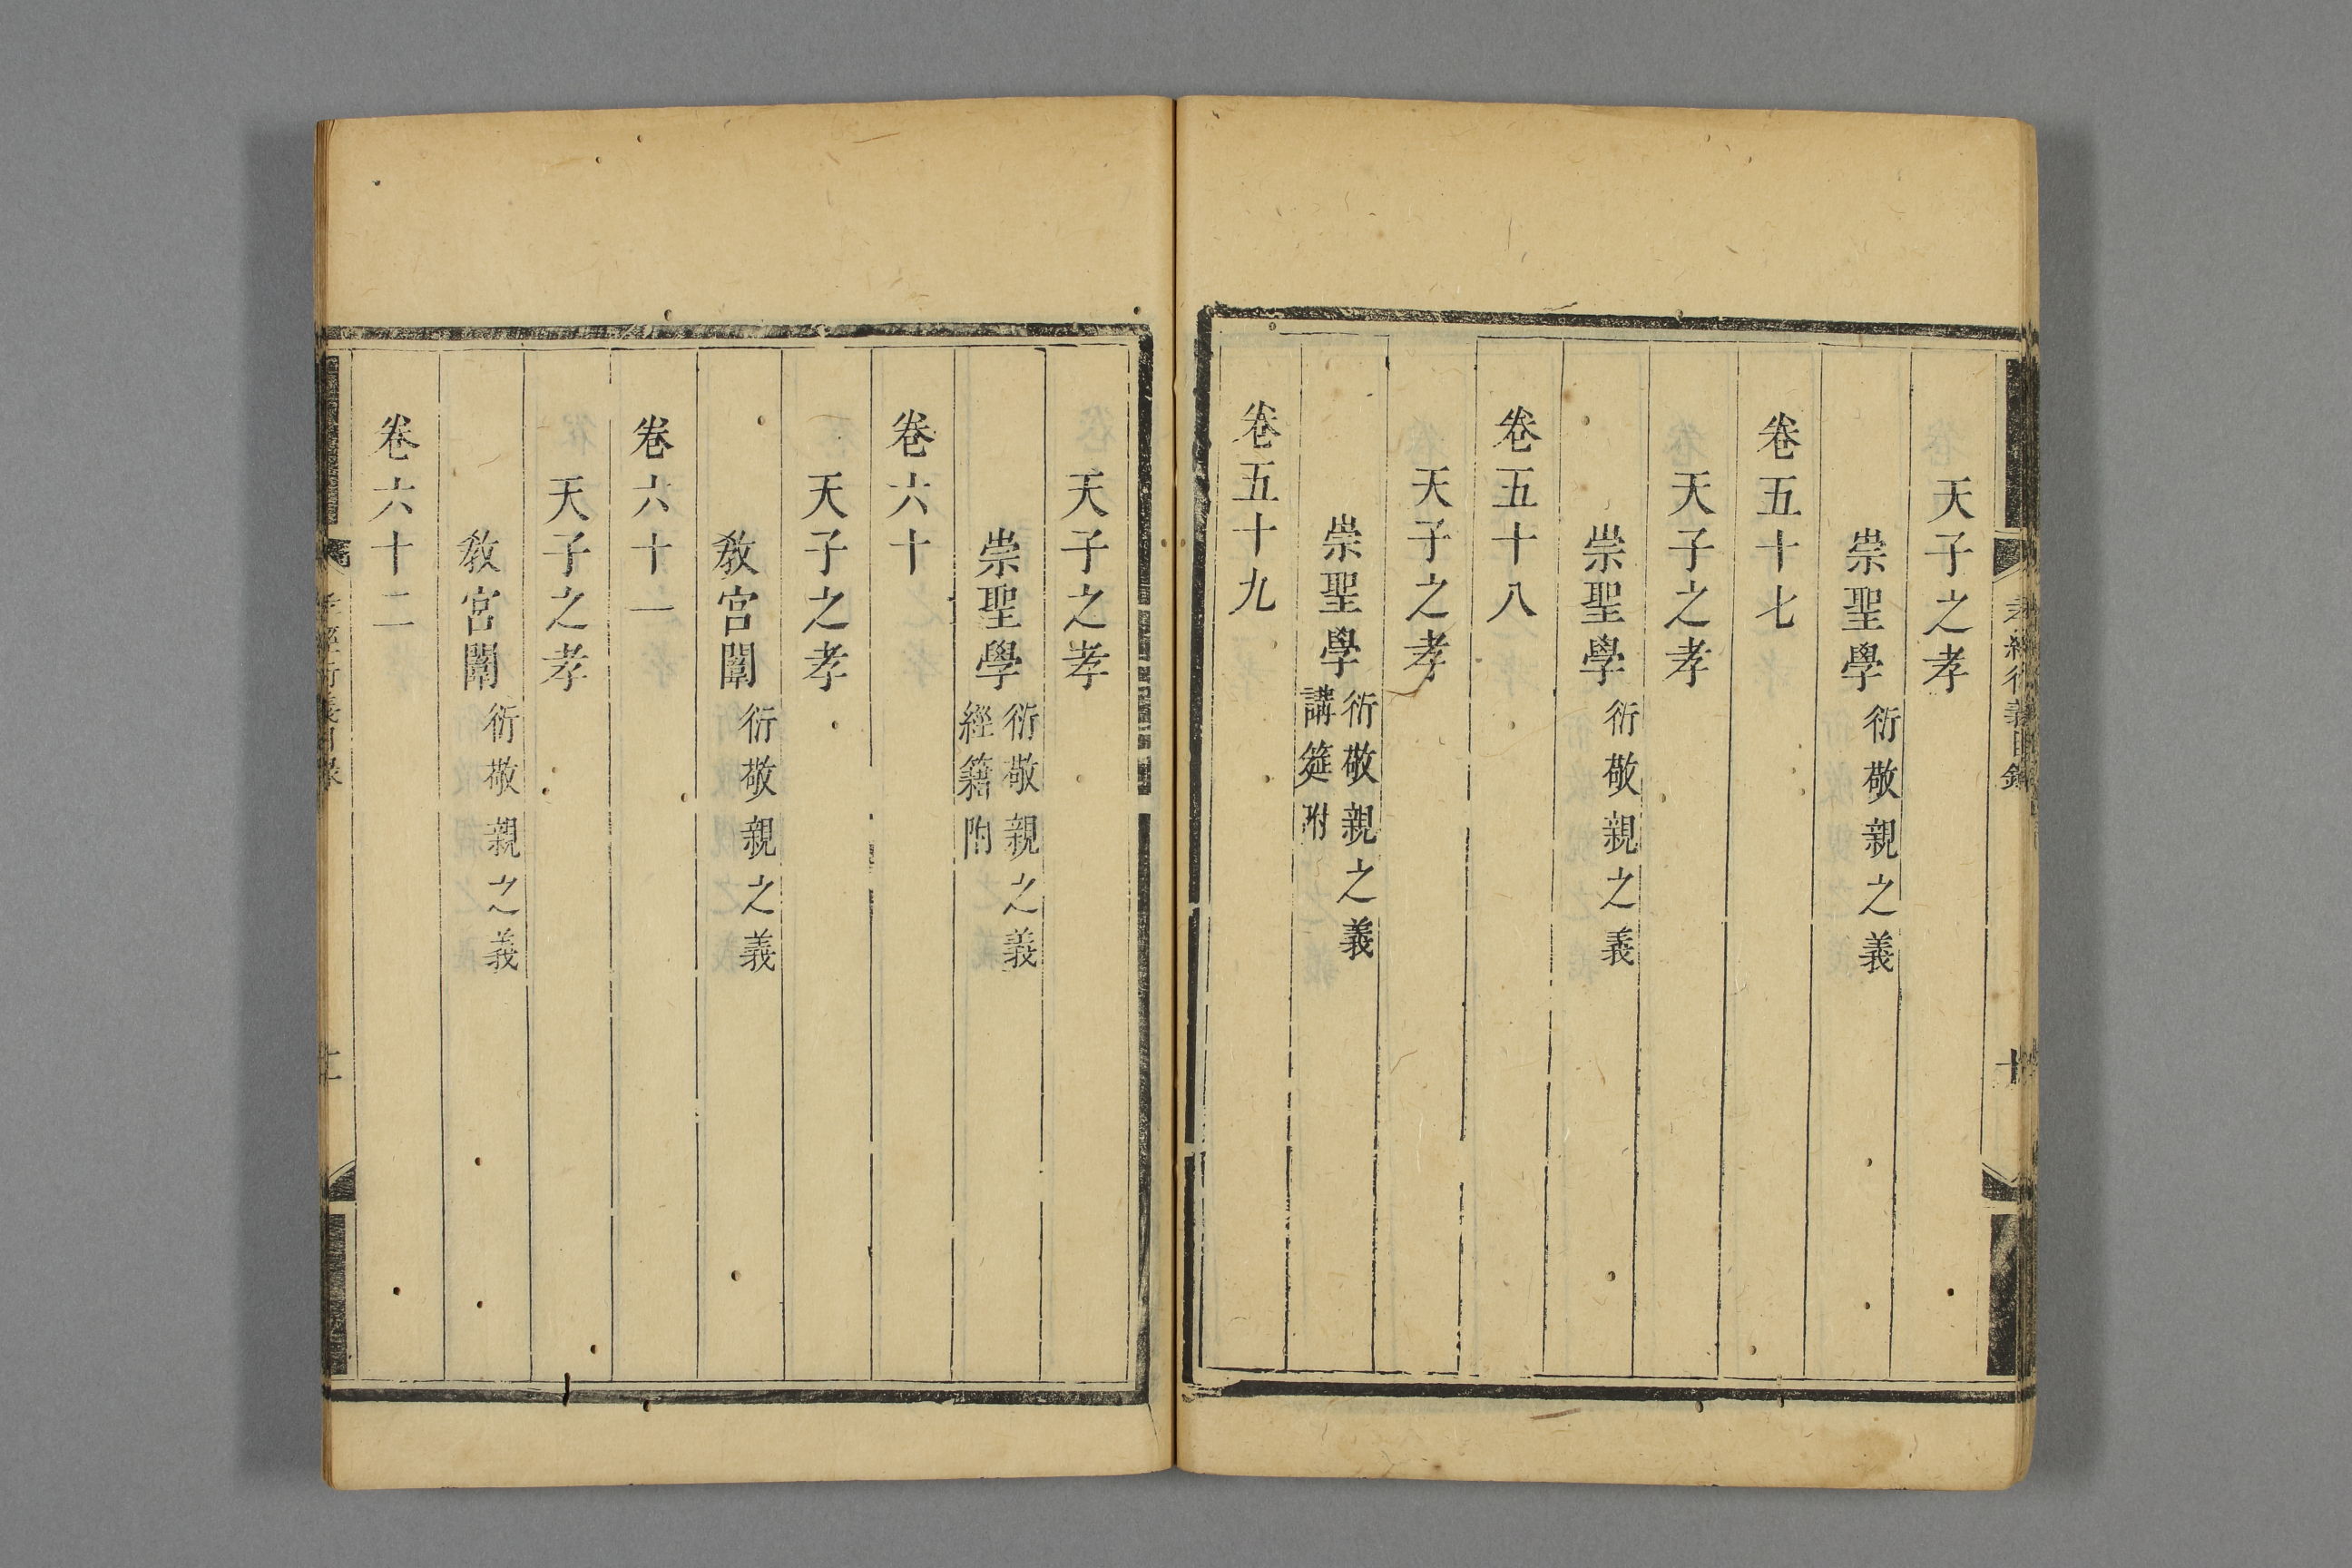 天子之孝
崇聖學 衍敬親之義
卷五十七
天子之孝
崇聖學 衍敬親之義
卷五十八
天子之孝
崇聖學 衍敬親之義
講筵附
卷五十九
天子之孝
崇聖學 衍敬親之義
經籍附
卷六十
天子之孝
教宮闈 衍敬親之義
卷六十一
天子之孝
教宮闈 衍敬親之義
卷六十二